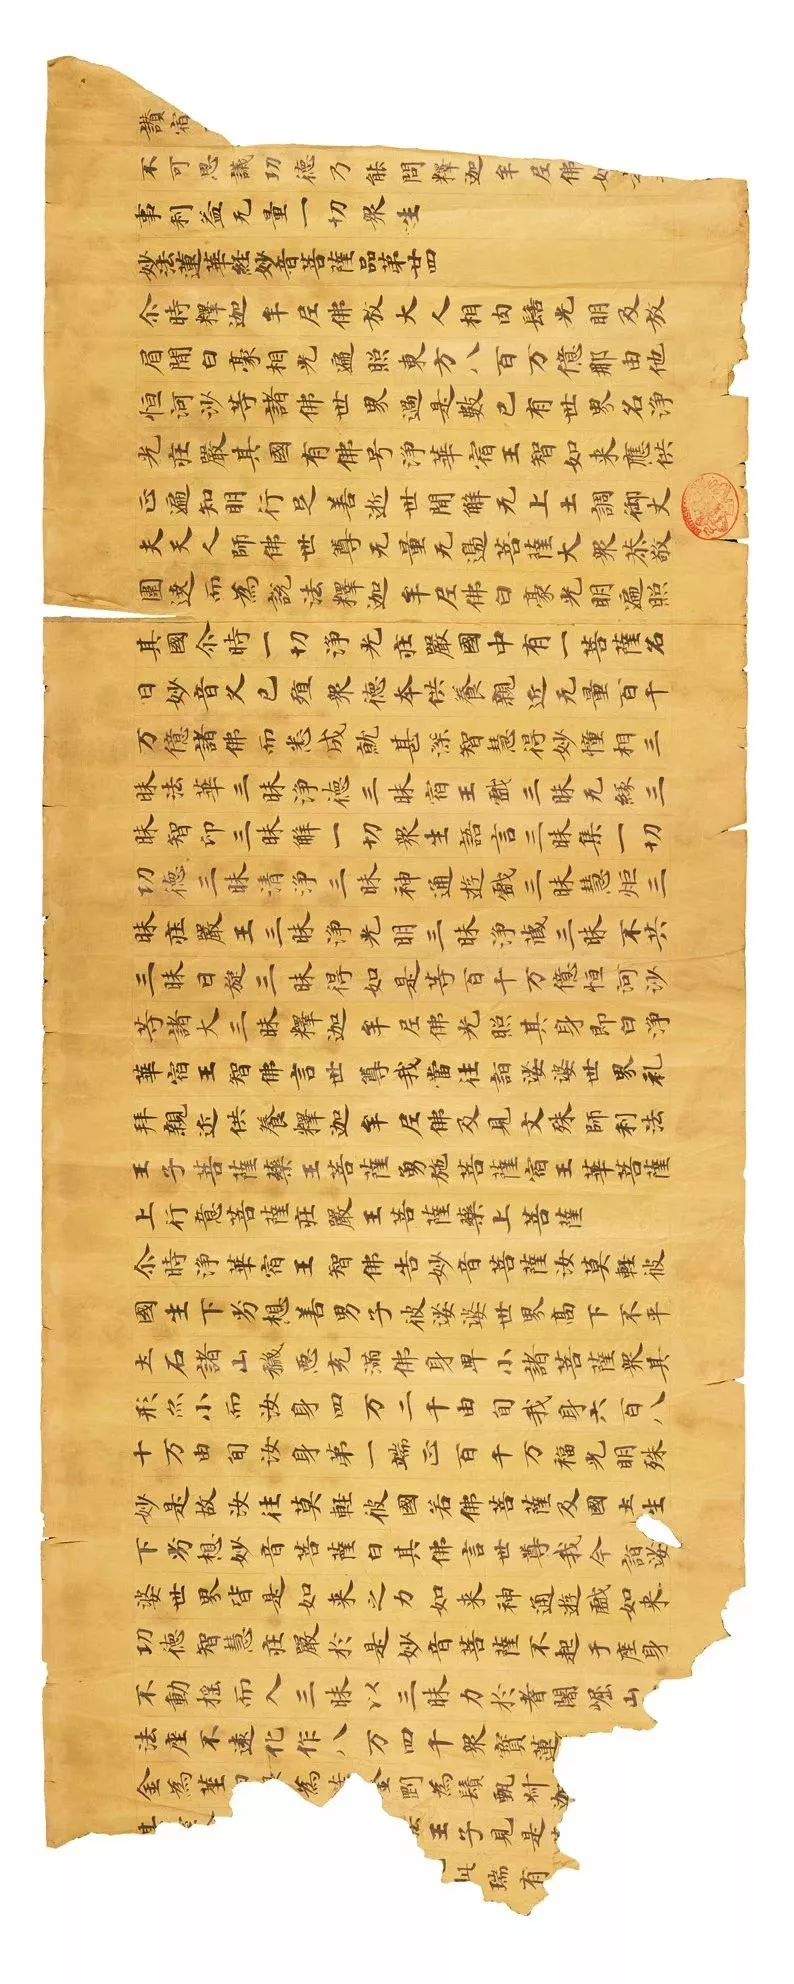 讃宿
不可思議功德乃能問釋迦牟尼佛如
事利益无量一切衆生
妙法蓮華経妙音菩薩品第廿四
尒時釋迦牟尼佛放大人相肉髻光明及放
眉間白豪相光遍照東方八百万億那由他
恒河沙等諸佛世界過是數已有世界名淨
光莊嚴其國有佛号淨華宿王智如来應供
正遍知明行足善逝世間解无上士調御丈
夫天人師佛世尊无量无邊菩薩大衆恭敬
圍遶而為說法釋迦牟尼佛白豪光明遍照
其國尒時一切淨光莊嚴國中有一菩薩名
曰妙音久已殖衆德本供養親近无量百千
万億諸佛而悉成就甚深智慧得妙憧相三
昧法華三昧淨德三昧宿王戲三昧无緣三
昧智印三昧解一切衆生語言三昧集一切
功德三昧清淨三昧神通遊戲三昧慧炬三
昧莊嚴王三昧淨光明三昧淨藏三昧不共
三昧日旋三昧得如是等百千万億恒河沙
等諸大三昧釋迦牟尼佛光照其身即白淨
華宿王智佛言世尊我當往詣娑婆世界礼
拜親近供養釋迦牟尼佛及見文殊師利法
王子菩薩藥王菩薩勇施菩薩宿王華菩薩
上行意菩薩莊嚴王菩薩藥上菩薩
尒時淨華宿王智佛告妙音菩薩汝莫輕彼
國生下劣想善男子彼娑婆世界高下不平
土石諸山穢惡充滿佛身卑小諸菩薩衆其
形亦小而汝身四万二千由旬我身六百八
十万由旬汝身第一端正百千万福光明殊
妙是故汝往莫輕彼國若佛菩薩及國土生
下劣想妙音菩薩白其佛言世尊我今詣娑
婆世界皆是如来之力如来神通遊戲如来
功德智慧莊嚴於是妙音菩薩不起于座身
不動摇而入三昧以三昧力於耆闍崛山
法座不遠化作八万四千衆寶蓮
金為莖為金剛為鬚甄叔迦
王子見是
瑞有